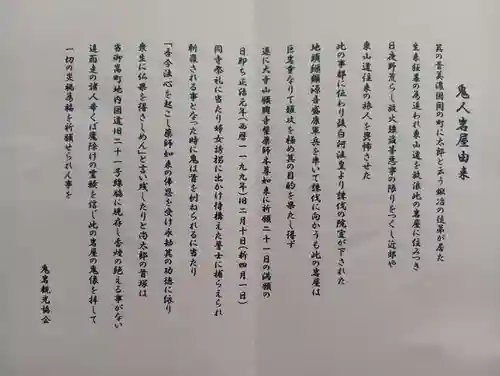 鬼人岩屋由来
昔の昔美濃国関の町に太郎と云う鍛冶の徒弟が居た
生来狂暴の為追われ東山道を放浪此の岩屋に住みつき
日夜野荒らし放火強盗等悪事の限りをつくし近郷や
東山道往来の旅人を畏怖させた
此の事都に伝わり後白河法皇より誅伐の院宣が下された
地頭纐纈源吾盛康軍兵を率いて誅伐に向かうも此の岩屋は
巨岩重なりて嶮岐を極め其の目的を果たし得ず
遂に大寺山願興寺蟹薬師本尊如来に祈願二十一日の満願の
日即ち正治元年(西暦一一九九年)旧二月十日(新四月一日)
同寺祭礼に当たり婦女誘拐に出かけ待構えた誉士に捕らえられ
斬罪される事となった時に鬼は首を刎ねられるに当たり
「吾今法心を起こし薬師如来の佛恩を受け永劫其の功徳に依り
衆生に仏果を得さしめん」と言い残したりと尚太郎の首塚は
当御嵩町地内国道旧二十一号線脇に現存し香煙の絶える事がない
遠近走の諸人希くば魔除けの霊験を信じ此の岩屋の鬼像を拝して
一切の災禍為福を祈願せられん事を
鬼岩観光協会